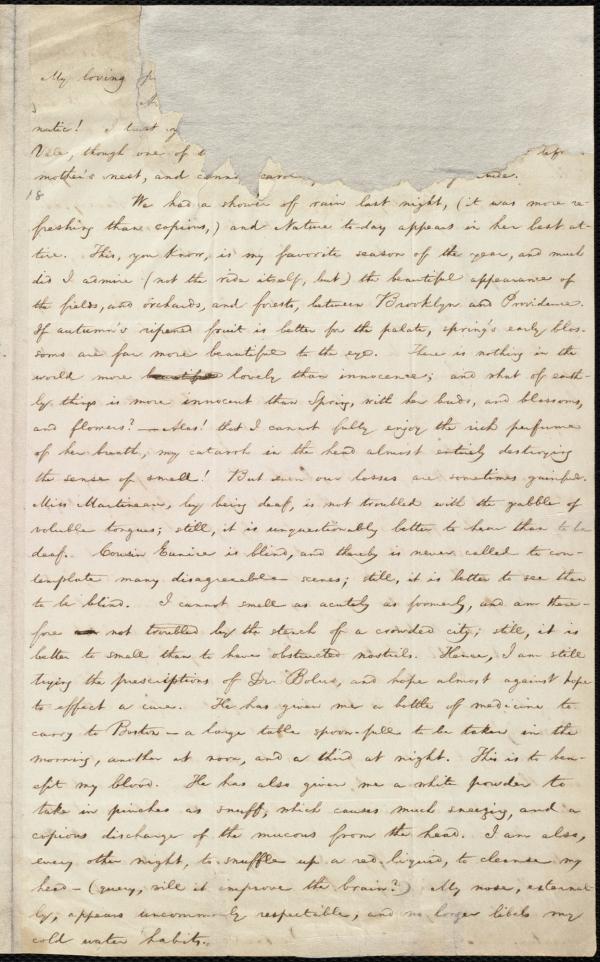 My loving
natic! I trust
Vale, though one of
mother's nest, and cannot
18
We had a shower of rain last night, (it was more re-
freshing than copious,) and Nature to-day appears in her best at-
tire. This, you know, is my favorite season of the year, and much
did I admire (not the ride itself, but) the beautiful appearance of
the fields, and orchards, and forests, between Brooklyn and Providence.
If autumn's ripened fruit is better for the palate, spring's early blos-
soms are far more beautiful to the eye. There is nothing in the
world more beautiful lovely than innocence; and what of earth-
ly things is more innocent than Spring, with her buds, and blossoms,
and flowers? — Alas! that I cannot fully enjoy the rich perfume
of her breath, my catarrh in the head almost entirely destroying
the sense of smell! But even our losses are sometimes gainful.
Miss Martineau, by being deaf, is not troubled with the gabble of
voluble tongues; still, it is unquestionably better to hear than to be
deaf. Cousin Eunice is blind, and thereby is never called to con-
template many disagreeable scenes; still, it is better to see than
to be blind. I cannot smell as acutely as formerly, and am there-
fore not troubled by the stench of a crowded city; still, it is
better to smell than to have obstructed nostrils. Hence, I am still
trying the prescriptions of Dr. Bolus, and hope almost against hope
to effect a cure. He has given me a bottle of medicine to
carry to Boston — a large table spoon-full to be taken in the
morning, another at noon, and a third at night. This is to ben-
efit my blood. He has also given me a white powder to
take in pinches as snuff, which causes much sneezing, and a
copious discharge of the mucous from the head. I am also,
every other night, to snuffle up a red liquid, to cleanse my
head — (query, will it improve the brain?) My nose, external-
ly, appears uncommonly respectable, and no longer libels my
cold water habits.